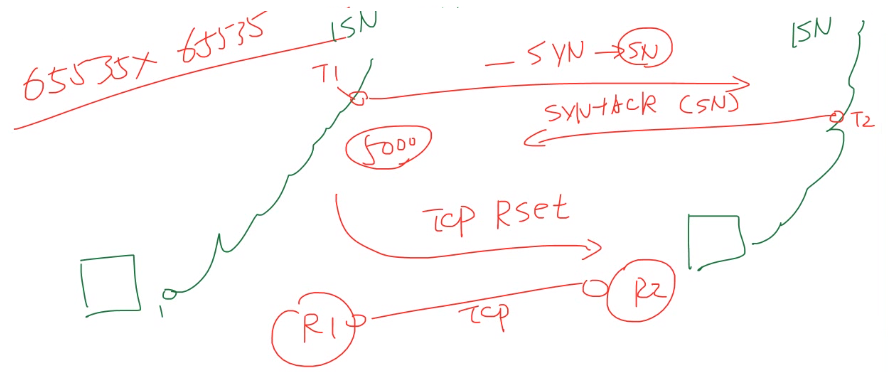 65535x 65535
ISN
ISN
T1
SYN → SN
SYN+ACK (SN)
T2
5000
TCP Rset
R1
TCP
R2